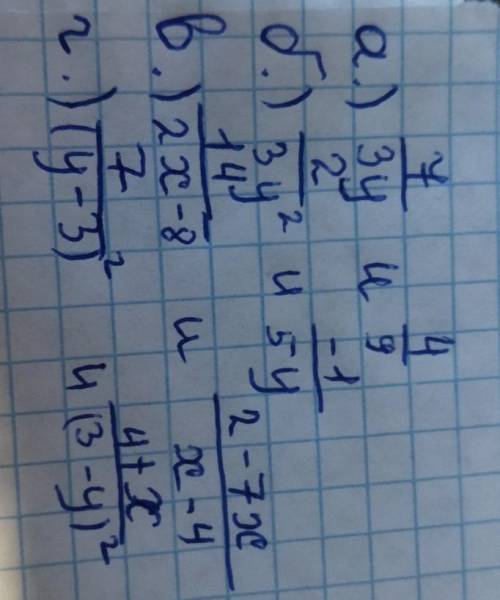 а.) 7/3y и 4/9
б.) 2/3y² и -1/5y
в.) 14/2x-8 и 2-7x/x-4
г.) 7/(y-3)² и 4+x/(3-y)²